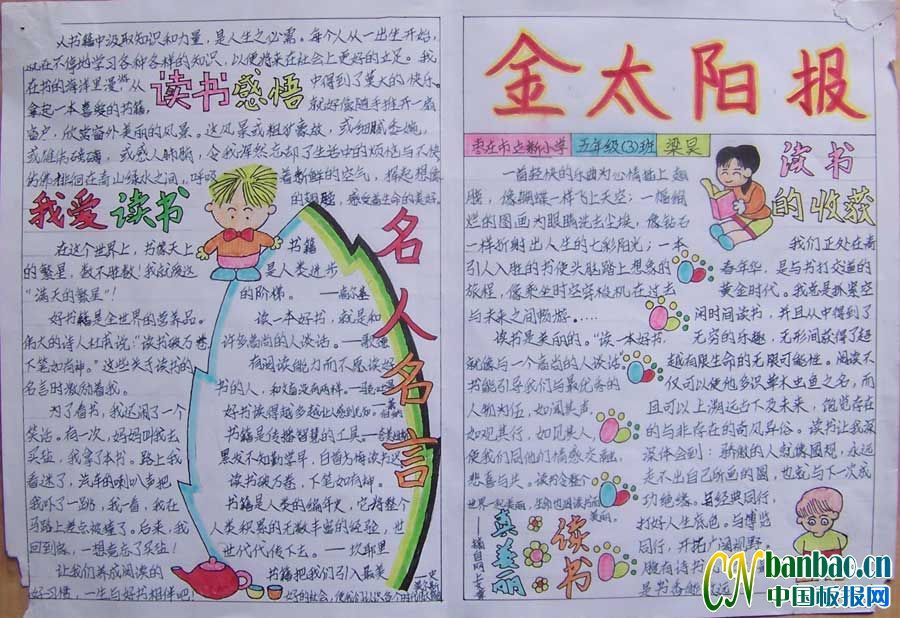 从书籍中汲取知识和力量，是人生之必需。每个人从一出生开始，
就在不停地学习各种各样的知识，以便将来在社会上更好的立足。我
在书的海洋里漫游，从
读书感悟
中得到了莫大的快乐。
拿起一本喜爱的书籍，
就好像随手推开一扇
窗户，欣赏窗外美丽的风景。这风景或粗犷豪放，或细腻委婉，
或感人肺腑，令我浑然忘却了生活中的烦恼与不快
徘徊在青山绿水之间，呼吸
着新鲜的空气，
的翅膀，感受着生命的美好。
我爱读书
在这个世界上，书像天上
的繁星，数不胜数！我就爱这
“满天的繁星”！
好书籍是全世界的营养品。
伟大的诗人杜甫说“读书破万卷
下笔如有神”。这些关于读书的
名言时刻激励着我。
为了看书，我还闹了一个
笑话。有一次，妈妈叫我去
买盐，我拿了本书。路上我
看迷了，汽车的喇叭声把
我吓了一跳，我一看，我在
马路上差点被撞了。后来，我
回到家，一想竟忘了买盐！
让我们养成阅读的
好习惯，一生与好书相伴吧！
名人名言
书籍
是人类进步
的阶梯。——高尔基
读一本好书，就是和
许多高尚的人谈话。——歌德
有阅读能力而不愿读好
书的人，和文盲没有两样。
好书读得越多越让人感到无知。
书籍是传播智慧的工具。
黑发不知勤学早，白首方悔读书迟
读书破万卷，下笔如有神。
书籍是人类的编年史，它将整个
人类积累的无数丰富的经验，世
世代代传下去。
书籍把我们引入最美
好的社会，使我们认识各个时代
金太阳报
枣庄市立新小学 五年级(3)班 梁昊
一首轻快的乐曲为心情插上翅
膀，像蝴蝶一样飞上天空；一幅绚
烂的图画为眼睛洗去尘埃，像钻石
一样折射出人生的七彩阳光；一本
引人入胜的书使头脑踏上想象的
旅程，像乘坐时空穿梭机在过去
与未来之间畅游。……
读书是美丽的。“读一本好书，
就像与一个高尚的人谈话
书能引导我们与最优秀的
人物为伍，如闻其声，
如观其行，如见其人，
使我们同他们情感交融，
悲喜与共。读书会令整个
真美丽
读书
读书
的收获
我们正处在青
春年华，是与书打交道的
黄金时代。我总是抓紧空
闲时间读书，并且从中得到了
无穷的乐趣，无形间获得了超
越有限生命的无限可能性。阅读不
仅可以使他多识草木虫鱼之名，而
且可以上溯远古下及未来，饱览存在
的与非存在的奇风异俗。读书让我
深体会到：骄傲的人就像圆规，永远
走不出自己所画的圆，也就与下一次成
功绝缘。与经典同行，
打好人生底色。与博览
同行，开拓广阔视野。
CN banbao.cn
中国板报网